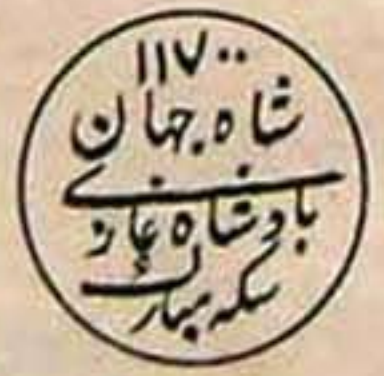 ۱۱۷۰۰
شاه جهان
بادشاه غازی
سکه مبارک